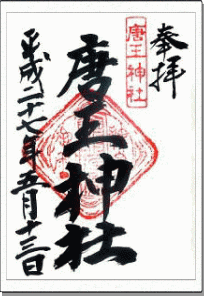 奉拝
唐王神社
唐王神社
平成二十七年五月十三日